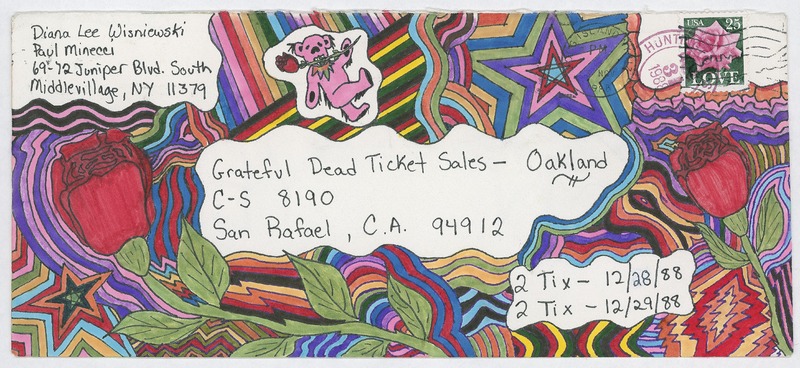 Diana Lee Wisniewski
Paul Minecci
69-72 Juniper Blvd. South
Middlevillage, NY 11379
USA 25
LOVE
HUNT
PM
Grateful Dead Ticket Sales - Oakland
C-S 8190
San Rafael, C.A. 94912
2 Tix - 12/28/88
2 Tix - 12/29/88